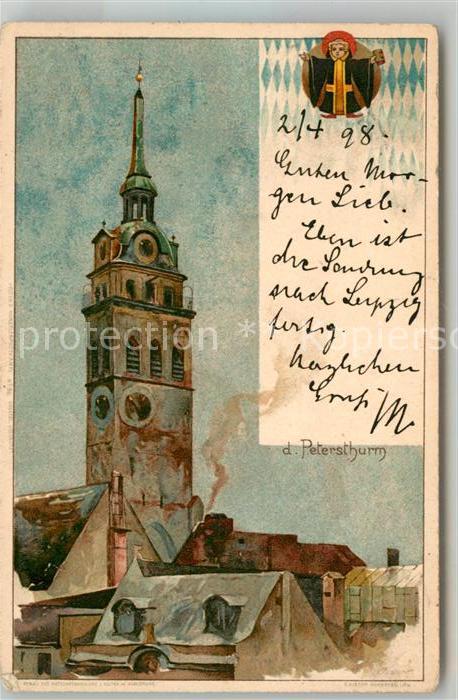 2/4 98.
Guten Mor-
gen Lieb.
Eben ist
die Sendung
nach Leipzig
fertig.
Herzlichen
Gruß M
d. Petersthurm
protection * Kopiersc